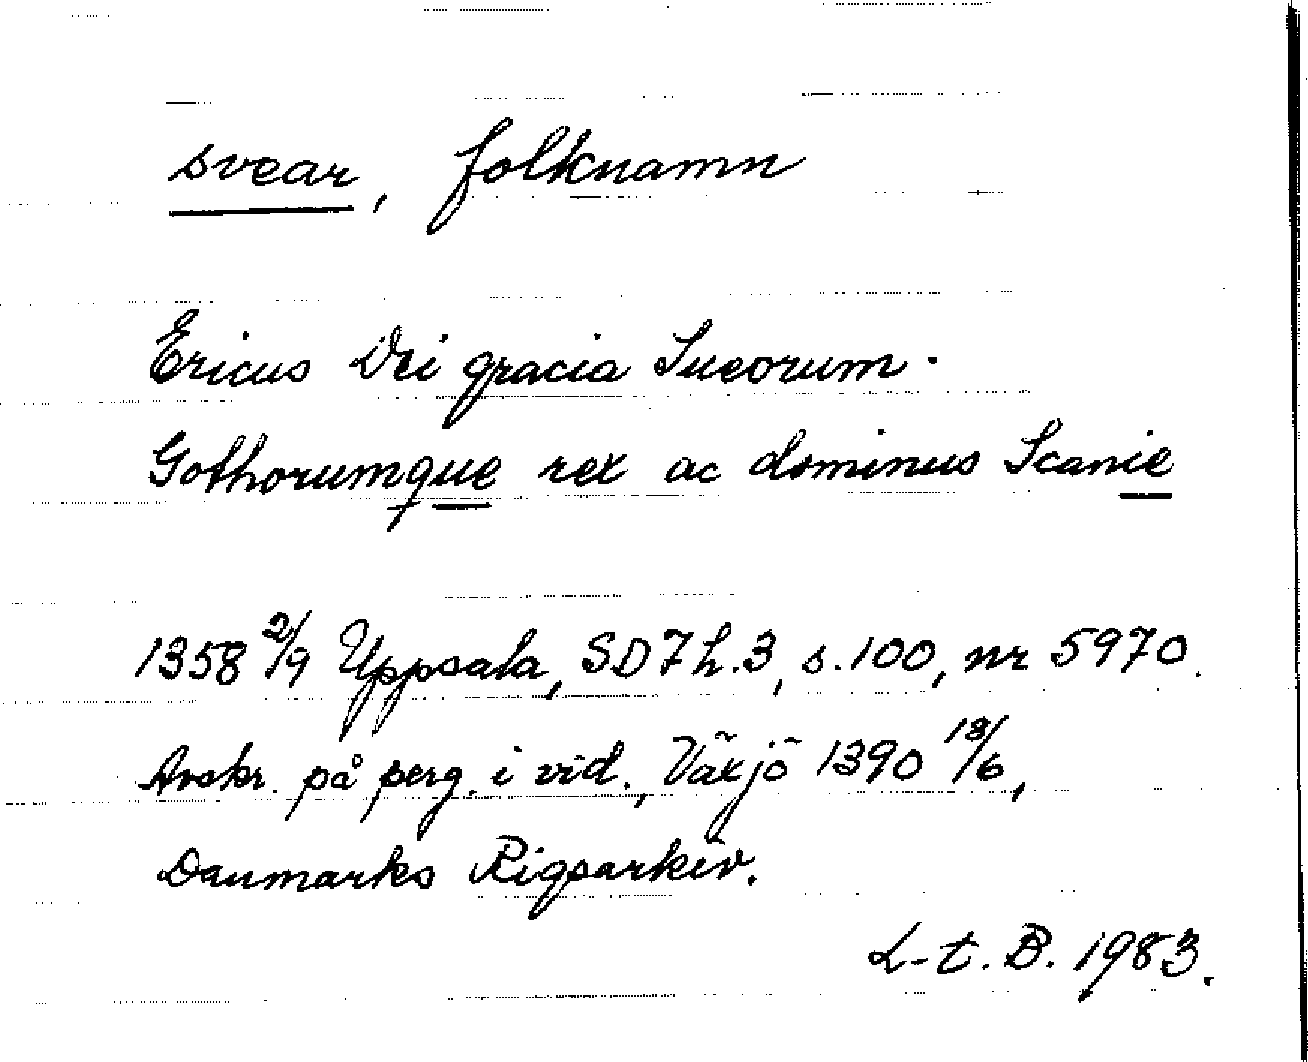 svear, folknamn
Ericus Dei gracia Sueorum.
Gothorumque rex ac dominus Scanie
1358 2/9 Uppsala, SD 7 h.3, s.100, nr 5970.
Avskr. på perg. i vid., Växjö 1390 13/6,
Danmarks Rigsarkiv.
L-t. B. 1983.